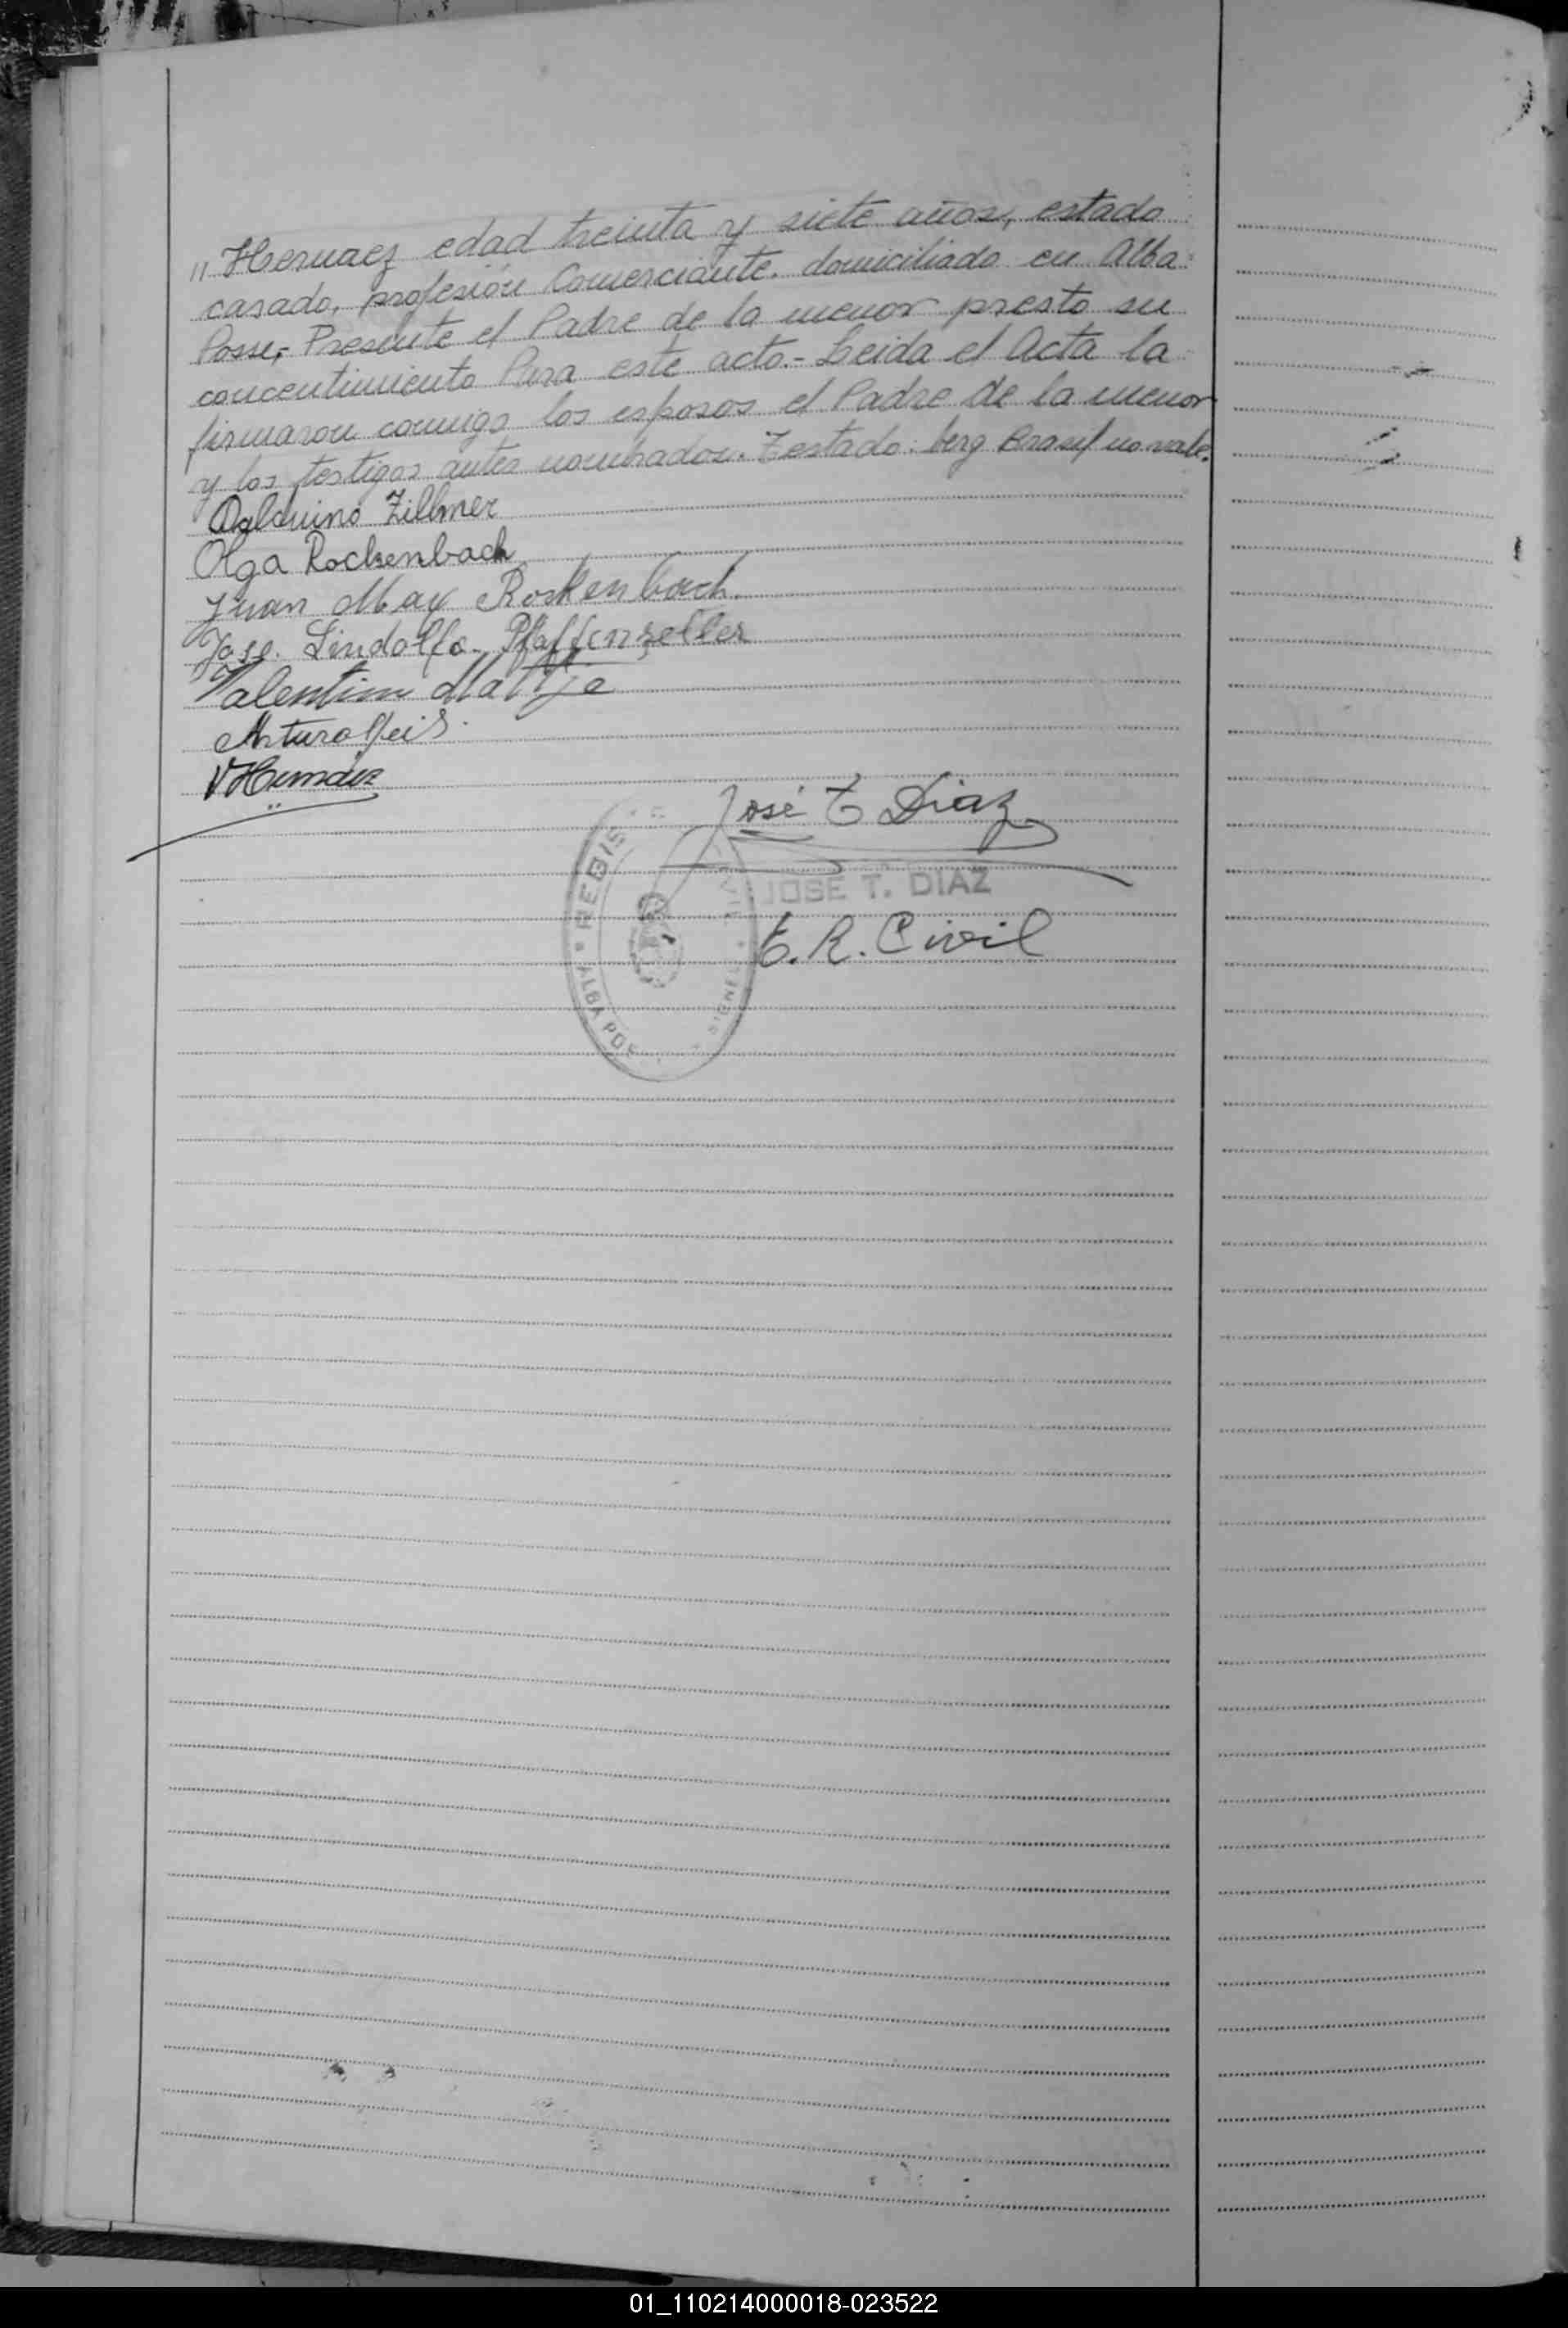 " Hernaez edad treinta y siete años, estado
casado, profesión Comerciante. domiciliado en Alba
Posse,- Presente el Padre de la menor presto su
concentimiento Para este acto.- Leida el Acta la
firmaron conmigo los esposos el Padre de la menor
y los testigos antes nombrados. Testado: berg Brasil no vale.
Balduino Zillmer
Olga Rockenbach
Juan May Rockenbach.
Jose. Lindolfo. Pfaffenzeller
Valentim Mattje
Arturo
VHernáez
José T Diaz
JOSE T. DIAZ
E. R. Civil
REGIS
ALBA POS
01_110214000018-023522